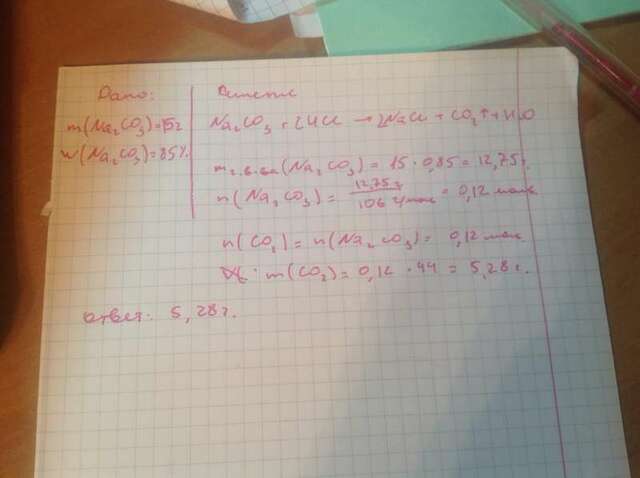 Дано:
m(Na₂CO₃)=15г
w(Na₂CO₃)=85%
Решение
Na₂CO₃ + 2HCl → 2NaCl + CO₂↑ + H₂O
m ч.в.ва (Na₂CO₃) = 15 · 0,85 = 12,75г.
n(Na₂CO₃) = 12,75г / 106 г/моль = 0,12 моль
n(CO₂) = n(Na₂CO₃) = 0,12 моль
m(CO₂) = 0,12 · 44 = 5,28г.
Ответ: 5,28г.